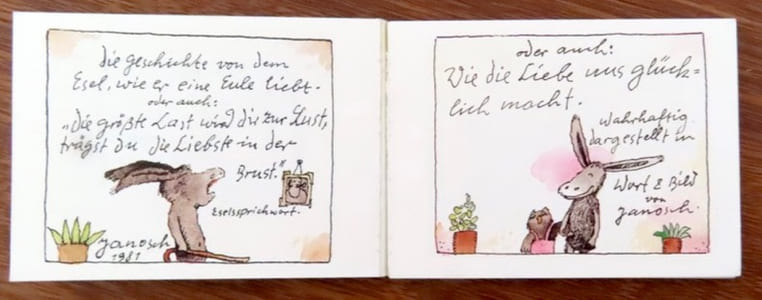 die geschichte von dem
Esel, wie er eine Eule liebt.
oder auch:
"die größte Last wird dir zur Lust,
trägst Du die Liebste in der
Brust."
Eselssprichwort.
Janosch
1981
oder auch:
Wie die Liebe uns glück=
lich macht.
wahrhaftig
dargestellt in
Wort & Bild
von
Janosch.